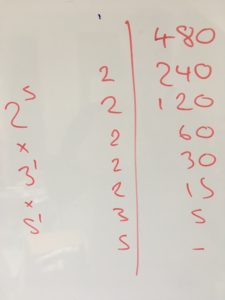 480
2 240
2 120
2 60
2 30
2 15
3 5
5 -
2⁵
×
3¹
×
5¹